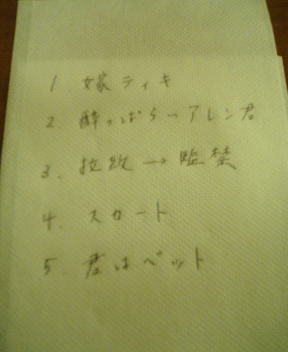 1 嫁ティキ
2. 酔っぱらいアレン君
3. 拉致→監禁
4. スカート
5. 君はペット